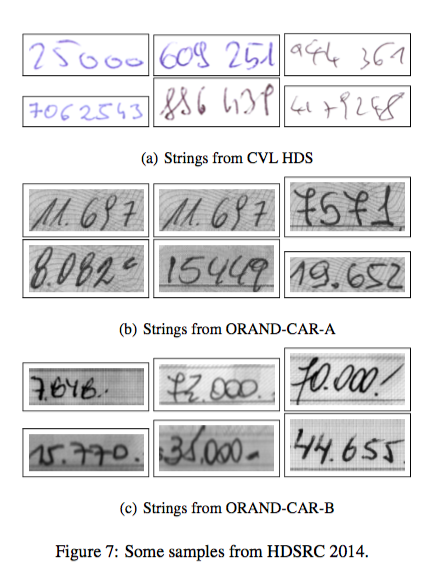 25000 609 251 944 361
7062543 886 439 4179248
(a) Strings from CVL HDS
11.697 11.697 7571
8.082 15449 19.652
(b) Strings from ORAND-CAR-A
7.848.. 72.000. 70.000.
15.770. 35.000 44.655
(c) Strings from ORAND-CAR-B
Figure 7: Some samples from HDSRC 2014.